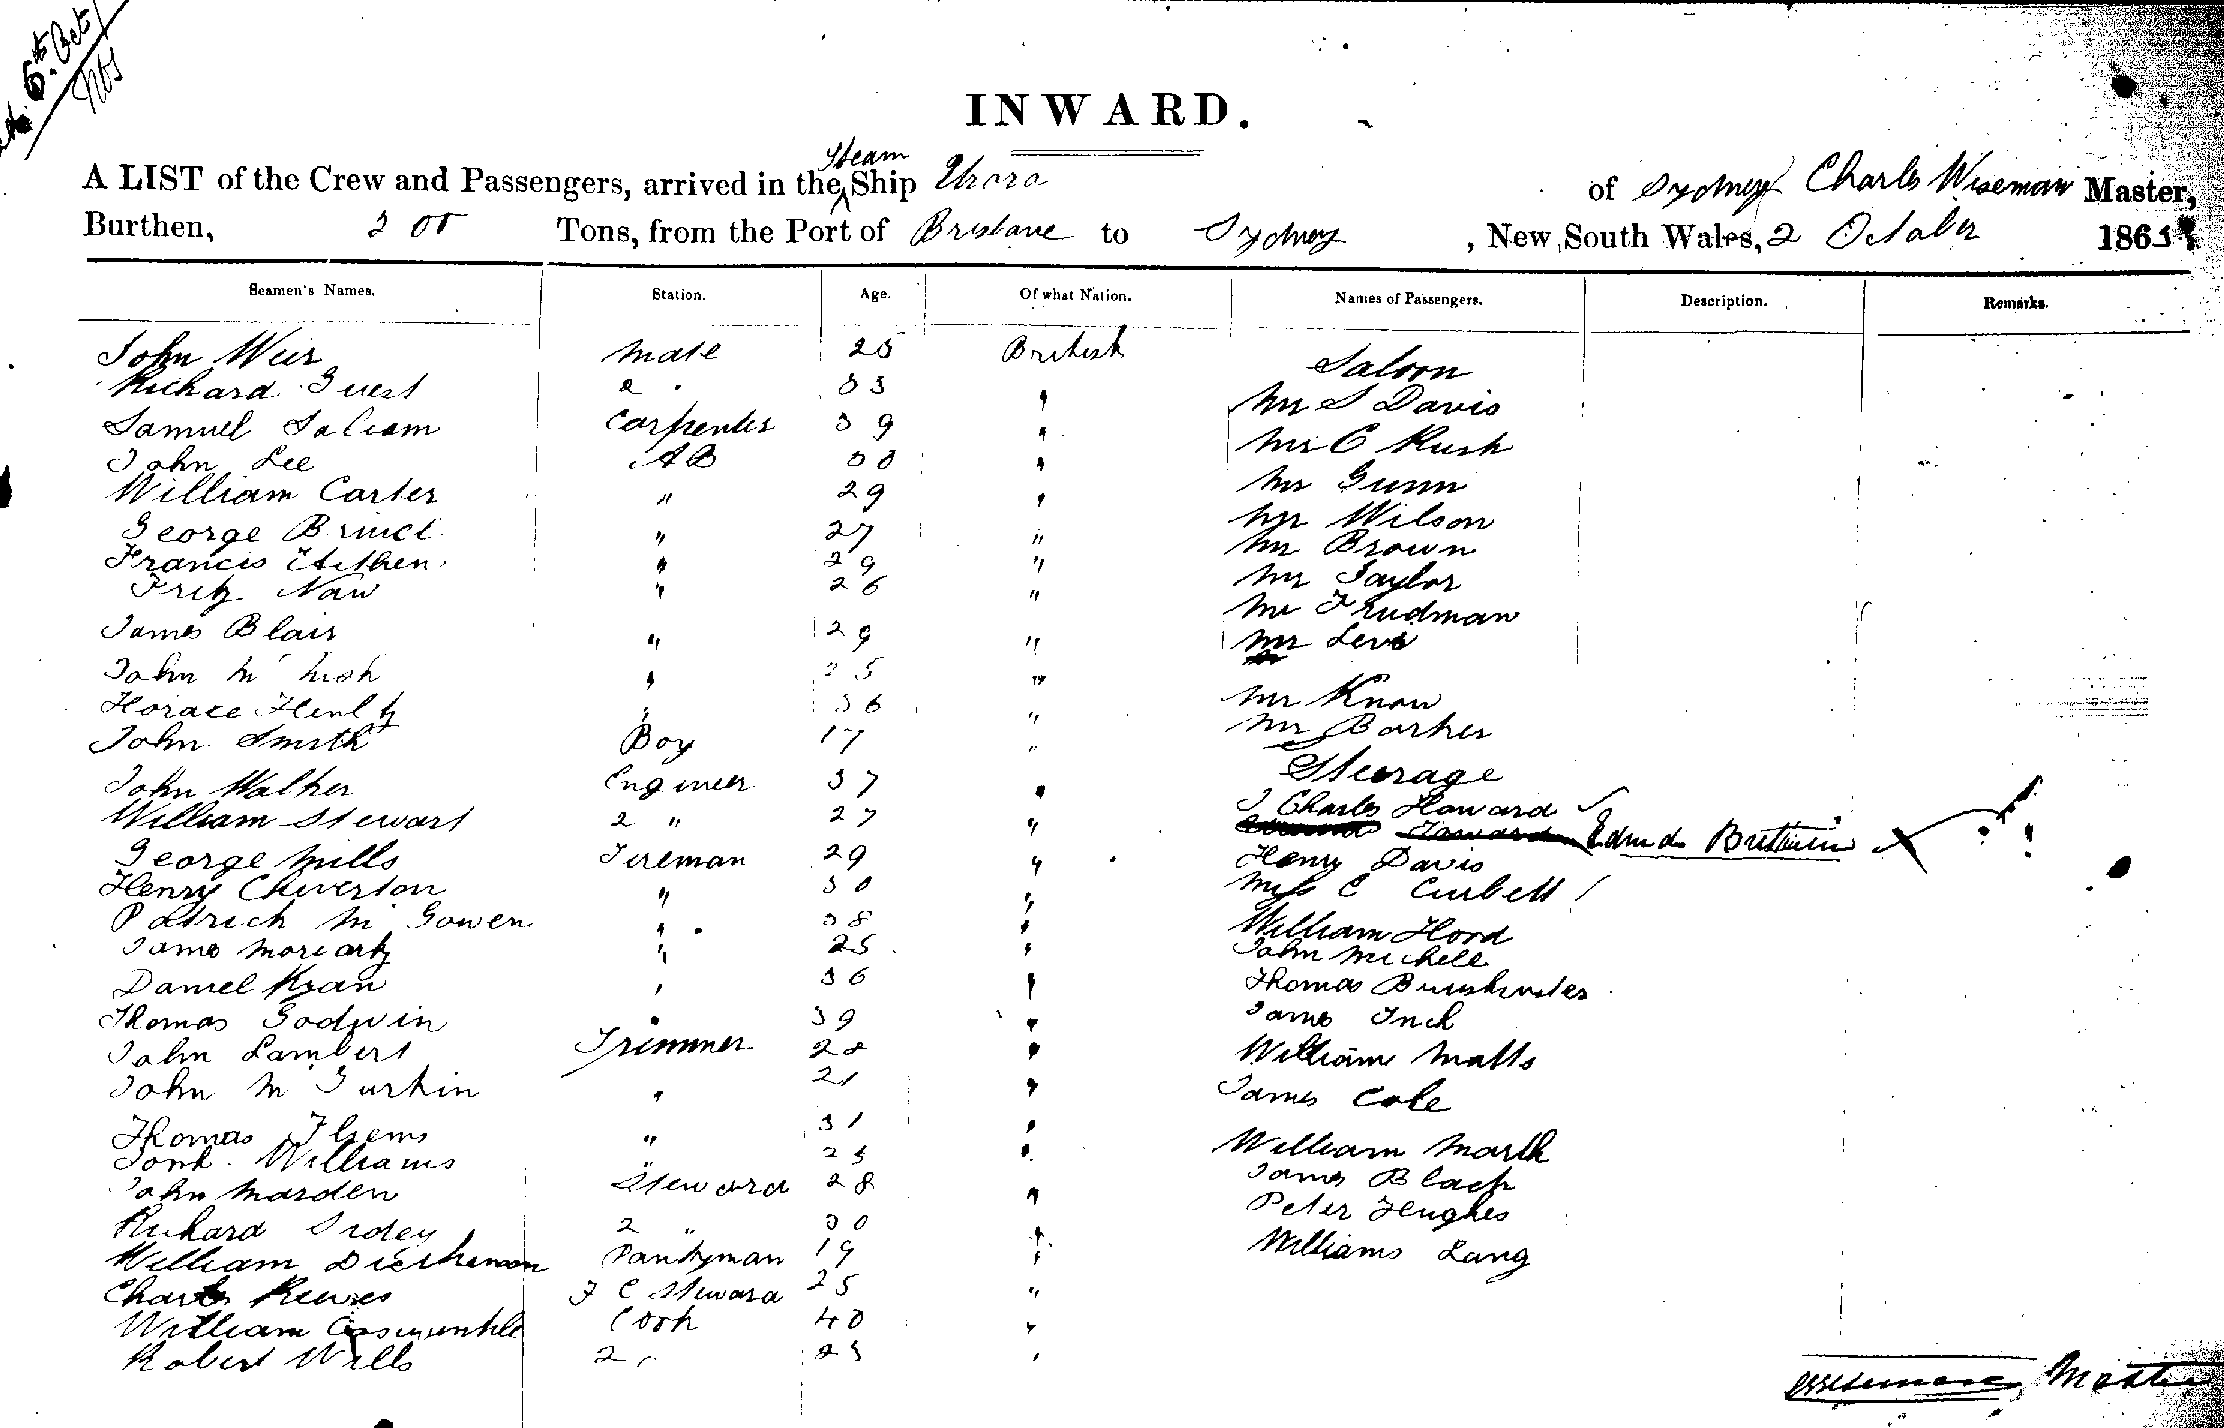 6th Oct /
INWARD.
A LIST of the Crew and Passengers, arrived in the Steam Ship of Sydney Charles Wiseman Master,
Burthen, 300 Tons, from the Port of Brisbane to Sydney, New South Wales, 2 October 1863
Seamen's Names. Station. Age. Of what Nation. Names of Passengers. Description. Remarks.
John Weir Mate 25 British Saloon
Richard Guest 2 " 33 " Mr S Davis
Samuel Carpenter 39 " Mr C Rush
John Lee AB 30 " Mr Gunn
William Carter " 29 " Mr Wilson
George " 27 " Mr Brown
Francis " 29 " Mr Taylor
Fritz Naw " 26 " Mr
James Blair " 29 " Mr Levi
John Mc " 35 " Mr Know
Horace " 36 " Mr Barker
John Smith Boy 17 " Steerage
John Walker Engineer 37 " Charles Howard
William Stewart 2 " 27 " Edmd
George Mills Fireman 29 " Henry Davis
Henry Chiverton " 30 " Miss C Curbett
Patrick Mc Gowen " 38 " William Hord
James Moriarty " 25 " John Michell
Daniel " 36 " Thomas
Thomas Godwin " 39 " James Inch
John Lambert Trimmer 28 " William Matts
John Mc Gurkin " 21 " James Cole
Thomas " 31 " William
Williams " 23 James Black
John Marsden Steward 28 " Peter Hughes
Richard Sidey 2 " 30 " Williams Lang
William Pantryman 19 "
Charles Reeves F C Steward 25 "
William Cook 40 "
Robert Wells 2 " 23 "
Master